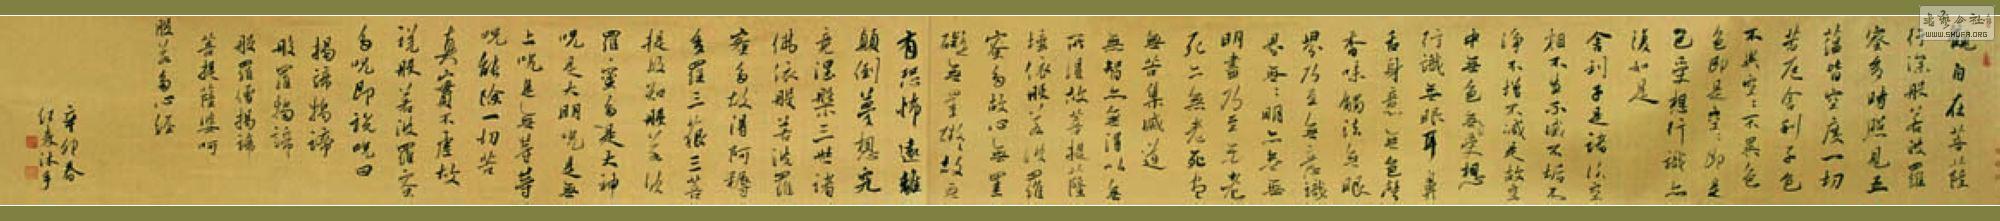 觀自在菩薩
行深般若波羅
密多時照見五
蘊皆空度一切
苦厄舍利子色
不異空〻不異色
色即是空〻即是
色受想行識亦
復如是
舍利子是諸法空
相不生不滅不垢不
淨不增不減是故空
中無色無受想
行識無眼耳鼻
舌身意無色聲
香味觸法無眼
界乃至無意識
界無〻明亦無無
明盡乃至無老
死亦無老死盡
無苦集滅道
無智亦無得以無
所得故菩提薩
埵依般若波羅
密多故心無罣
礙無罣礙故無
有恐怖遠離
顛倒夢想究
竟涅槃三世諸
佛依般若波羅
蜜多故得阿耨
多羅三藐三菩
提故知般若波
羅蜜多是大神
呪是大明呪是無
上呪是無等等
呪能除一切苦
真實不虛故
說般若波羅蜜
多呪即說呪曰
揭諦揭諦
般羅揭諦
般羅僧揭諦
菩提薩婆呵
般若多心經
辛卯春
沐手
WWW.SHUFA.ORG